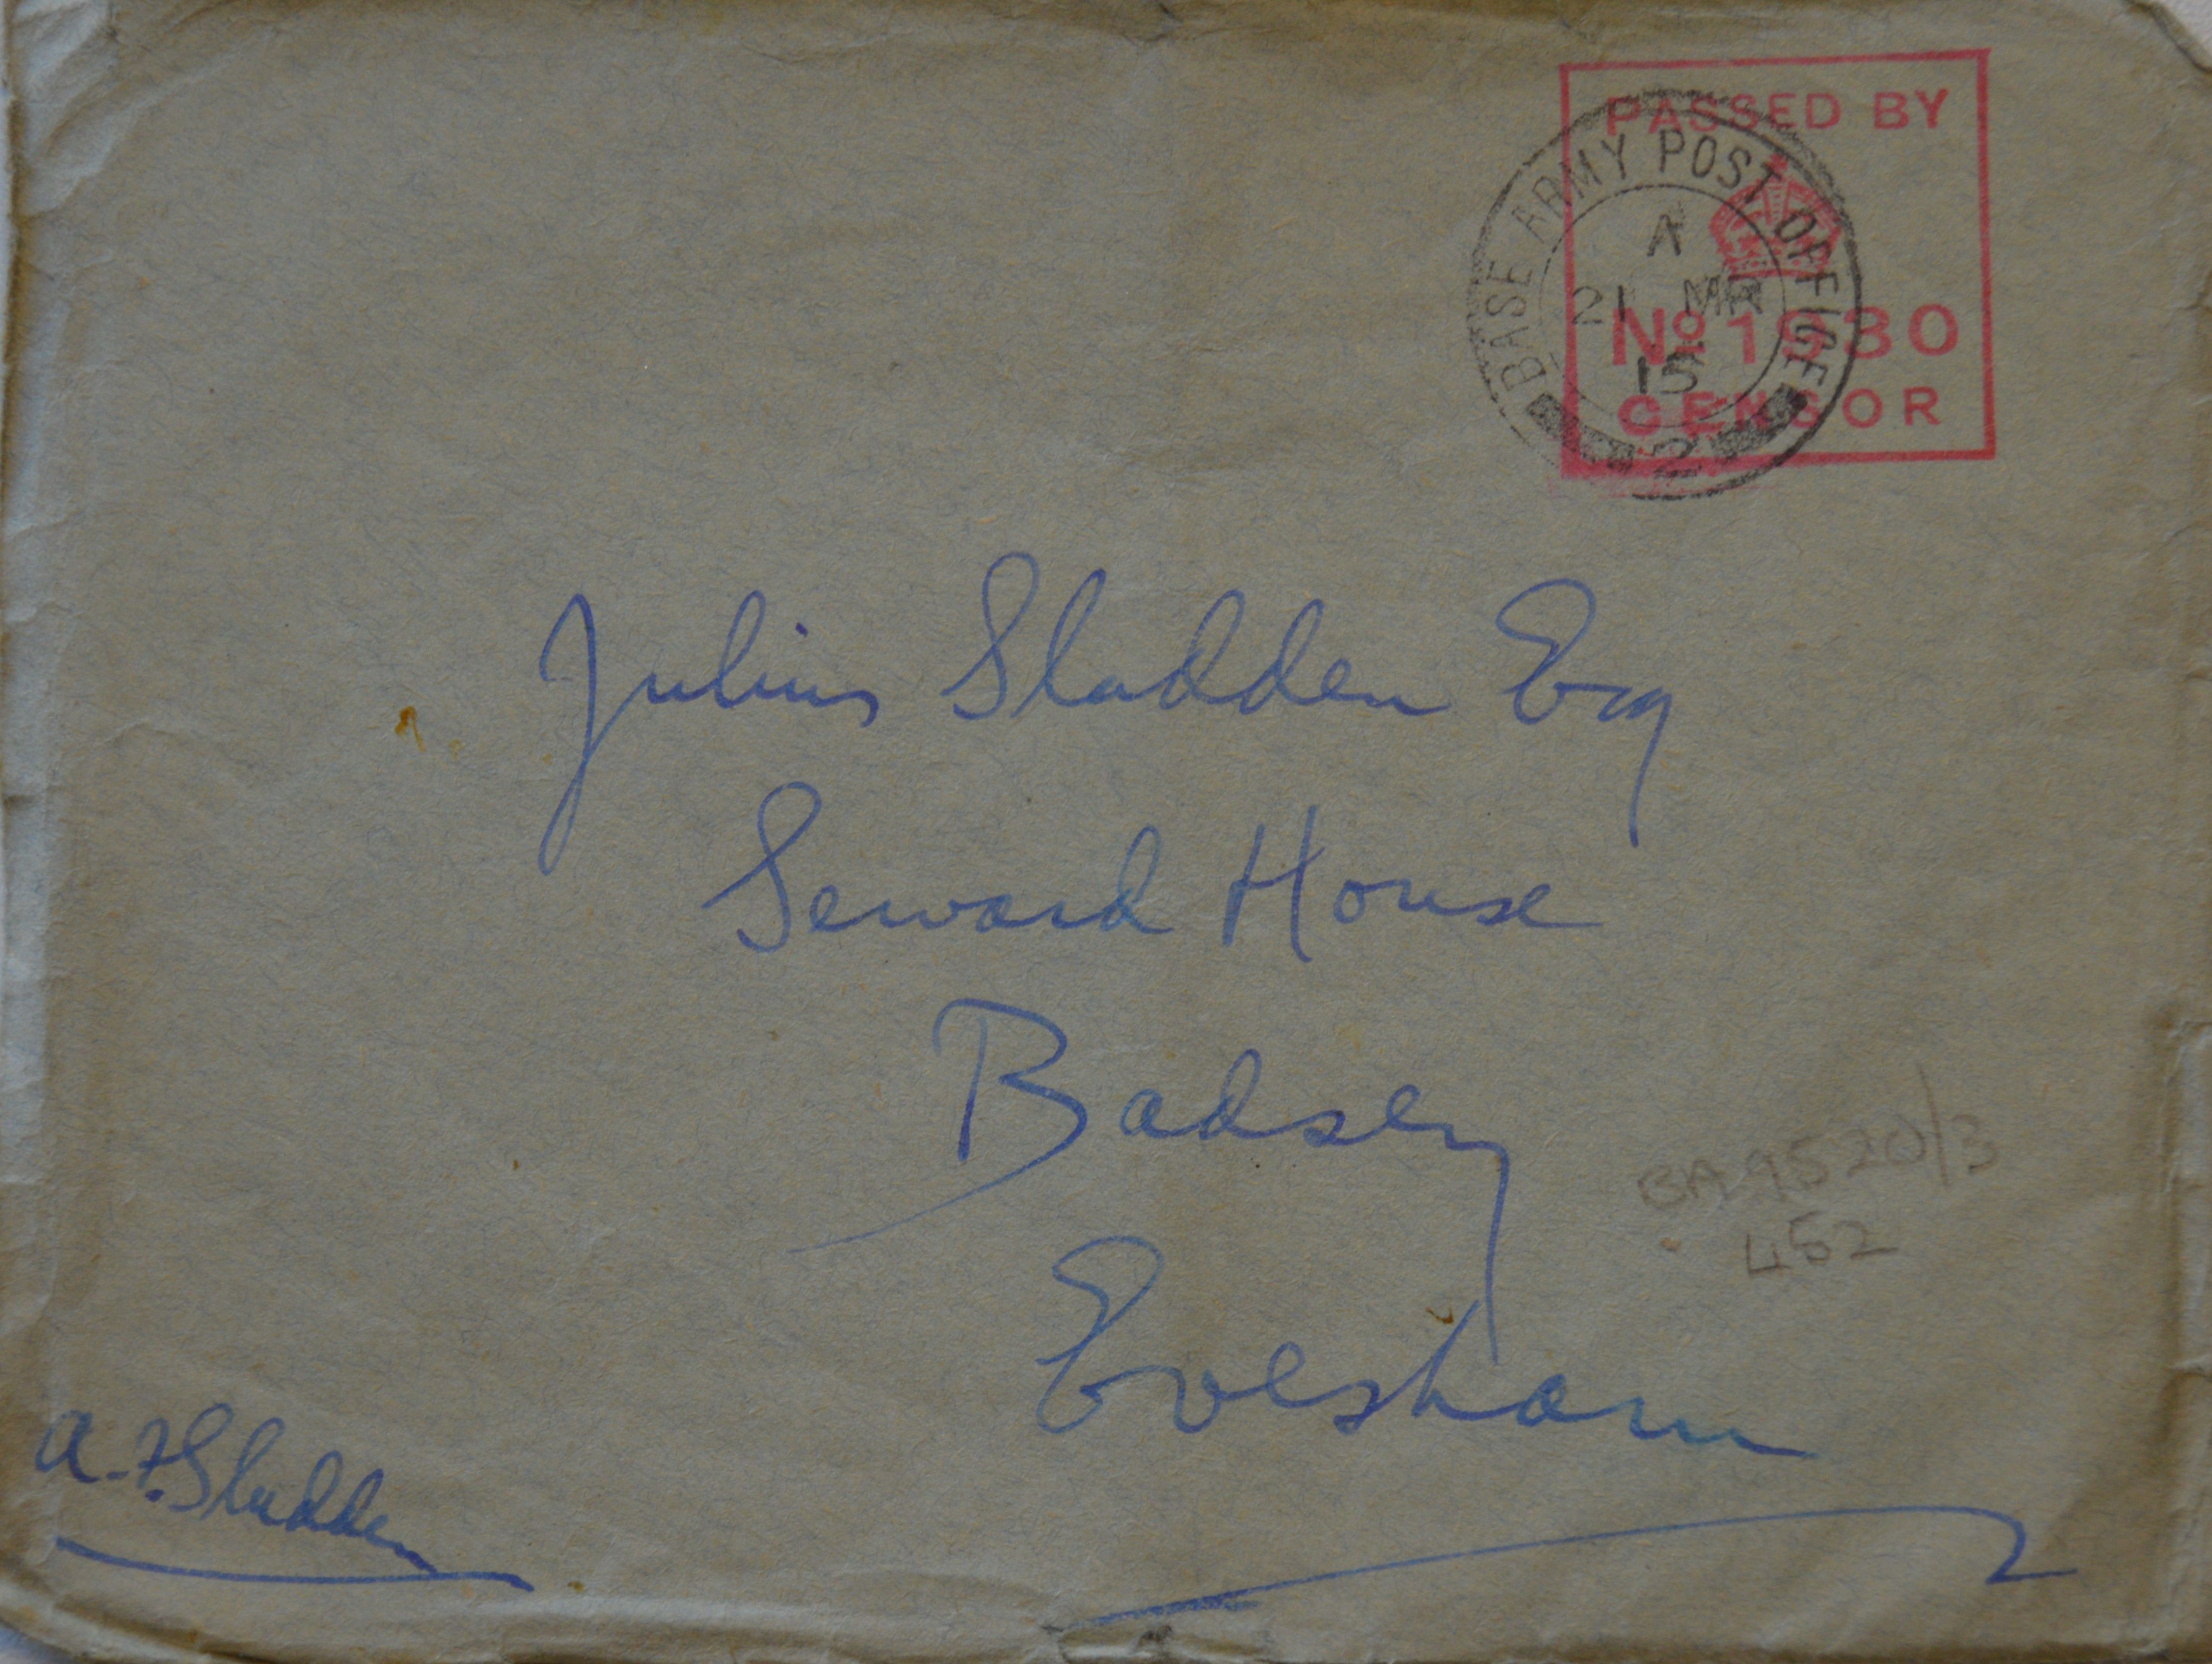 PASSED BY
BASE ARMY POST OFFICE
A
21 MR
15
2
No 1930
CENSOR
Julius Sladden Esq
Seward House
Badsey
Evesham
BA9520/3
452
A. F. Sladden